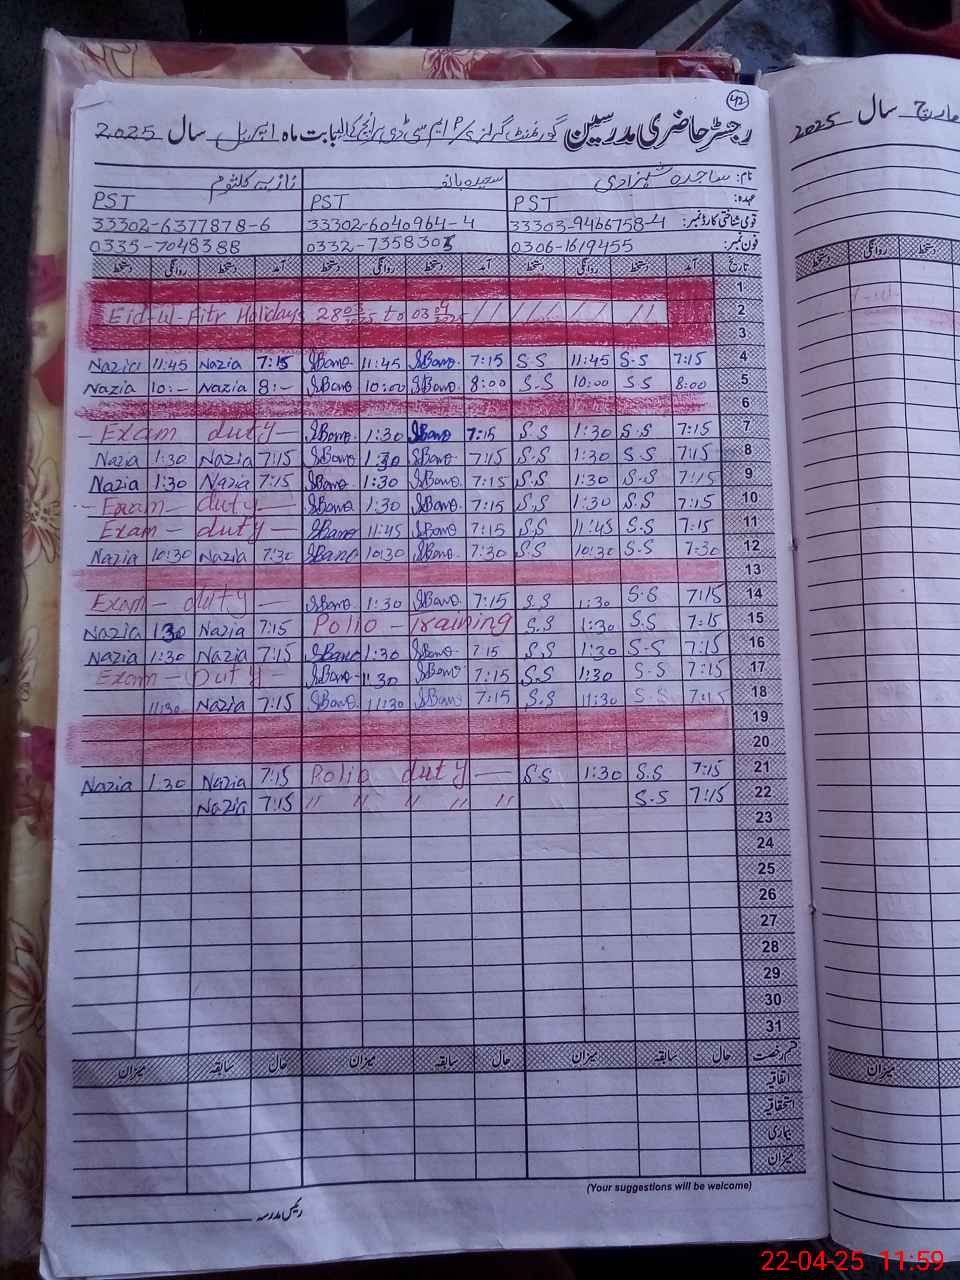 42
رجسٹر حاضری مدرسین گورنمنٹ گرلز بابت ماہ اپریل سال 2025
نام: ساجدہ شہزادی سعیدہ بانو نازیہ کلثوم
عہدہ: PST PST PST
قومی شناختی کارڈ نمبر: 33303-9466758-4 33302-6040964-4 33302-6377878-6
فون نمبر: 0306-1619455 0332-7358305 0335-7048388
تاریخ آمد دستخط روانگی دستخط آمد دستخط روانگی دستخط آمد دستخط روانگی دستخط
1
2 Eid-ul-Fitr Holidays 28 03 2025 to 03 04 2025 // // // // //
3
4 7:15 S.S 11:45 S.S 7:15 SBano 11:45 SBano 7:15 Nazia 11:45 Nazia
5 8:00 S.S 10:00 S.S 8:00 SBano 10:00 SBano 8:- Nazia 10:- Nazia
6
7 7:15 S.S 1:30 S.S 7:15 SBano 1:30 SBano - Exam duty -
8 7:15 S.S 1:30 S.S 7:15 SBano 1:30 SBano 7:15 Nazia 1:30 Nazia
9 7:15 S.S 1:30 S.S 7:15 SBano 1:30 SBano 7:15 Nazia 1:30 Nazia
10 7:15 S.S 1:30 S.S 7:15 SBano 1:30 SBano - Exam - duty -
11 7:15 S.S 11:45 S.S 7:15 SBano 11:45 SBano Exam - duty -
12 7:30 S.S 10:30 S.S 7:30 SBano 10:30 SBano 7:30 Nazia 10:30 Nazia
13
14 7:15 S.S 1:30 S.S 7:15 SBano 1:30 SBano Exam - duty -
15 7:15 S.S 1:30 S.S Polio - training 7:15 Nazia 1:30 Nazia
16 7:15 S.S 1:30 S.S 7:15 SBano 1:30 SBano 7:15 Nazia 1:30 Nazia
17 7:15 S.S 1:30 S.S 7:15 SBano 11:30 SBano Exam - Duty -
18 7:15 S.S 11:30 S.S 7:15 SBano 11:30 SBano 7:15 Nazia 11:30
19
20
21 7:15 S.S 1:30 S.S Polio duty - 7:15 Nazia 1:30 Nazia
22 7:15 S.S // // // // // 7:15 Nazia
23
24
25
26
27
28
29
30
31
قسم رخصت حال سابقہ میزان حال سابقہ میزان حال سابقہ میزان
اتفاقیہ
استحقاقیہ
بیماری
میزان
(Your suggestions will be welcome)
رئیس مدرسہ
مارچ سال 2025
دستخط روانگی دستخط
میزان
22-04-25 11:59